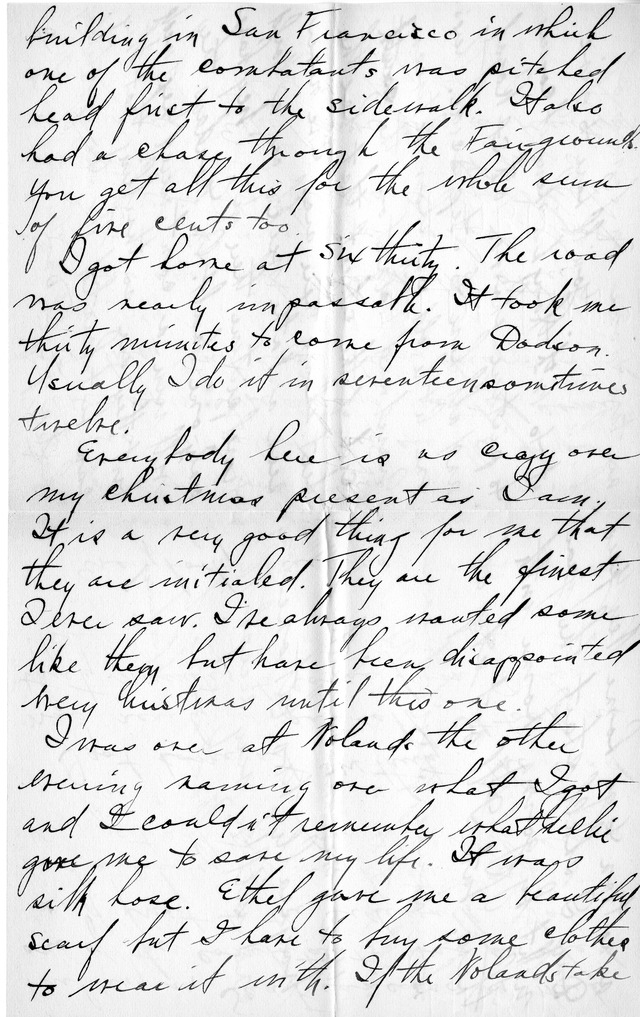 building in San Francisco in which
one of the combatants was pitched
head first to the sidewalk. It also
had a chase through the Fairgrounds.
You get all this for the whole sum
of five cents too.
I got home at six thirty. The road
was nearly impassable. It took me
thirty minutes to come from Dodson.
Usually I do it in seventeen sometimes
twelve.
Everybody here is as crazy over
my christmas present as I am.
It is a very good thing for me that
they are initialed. They are the finest
I ever saw. I've always wanted some
like them but have been disappointed
every Christmas until this one.
I was over at Nolands the other
evening naming over what I got
and I couldn't remember what Nellie
gave me to save my life. It was
silk hose. Ethel gave me a beautiful
scarf but I have to buy some clothes
to wear it with. If the Nolands take